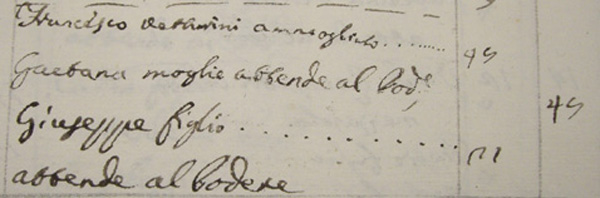 Francesco Vetturini ammogliato......... 45
Gaetana moglie attende al Pod.e
45
Giuseppe figlio ............
attende al Podere